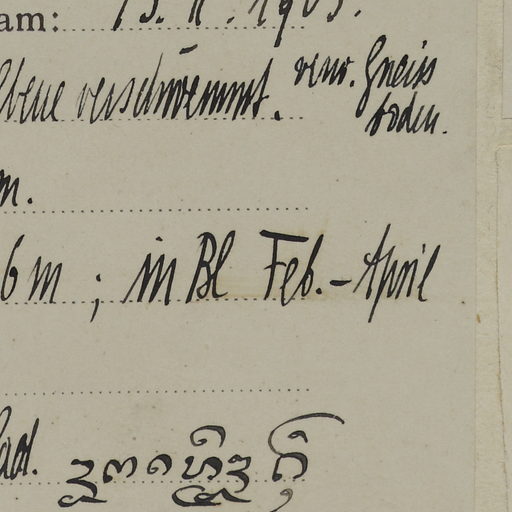 am: 13. II. 1905.
Ebene verschwemmt. verw. Gneiss
boden.
m.
6 m ; in Bl Feb. - April